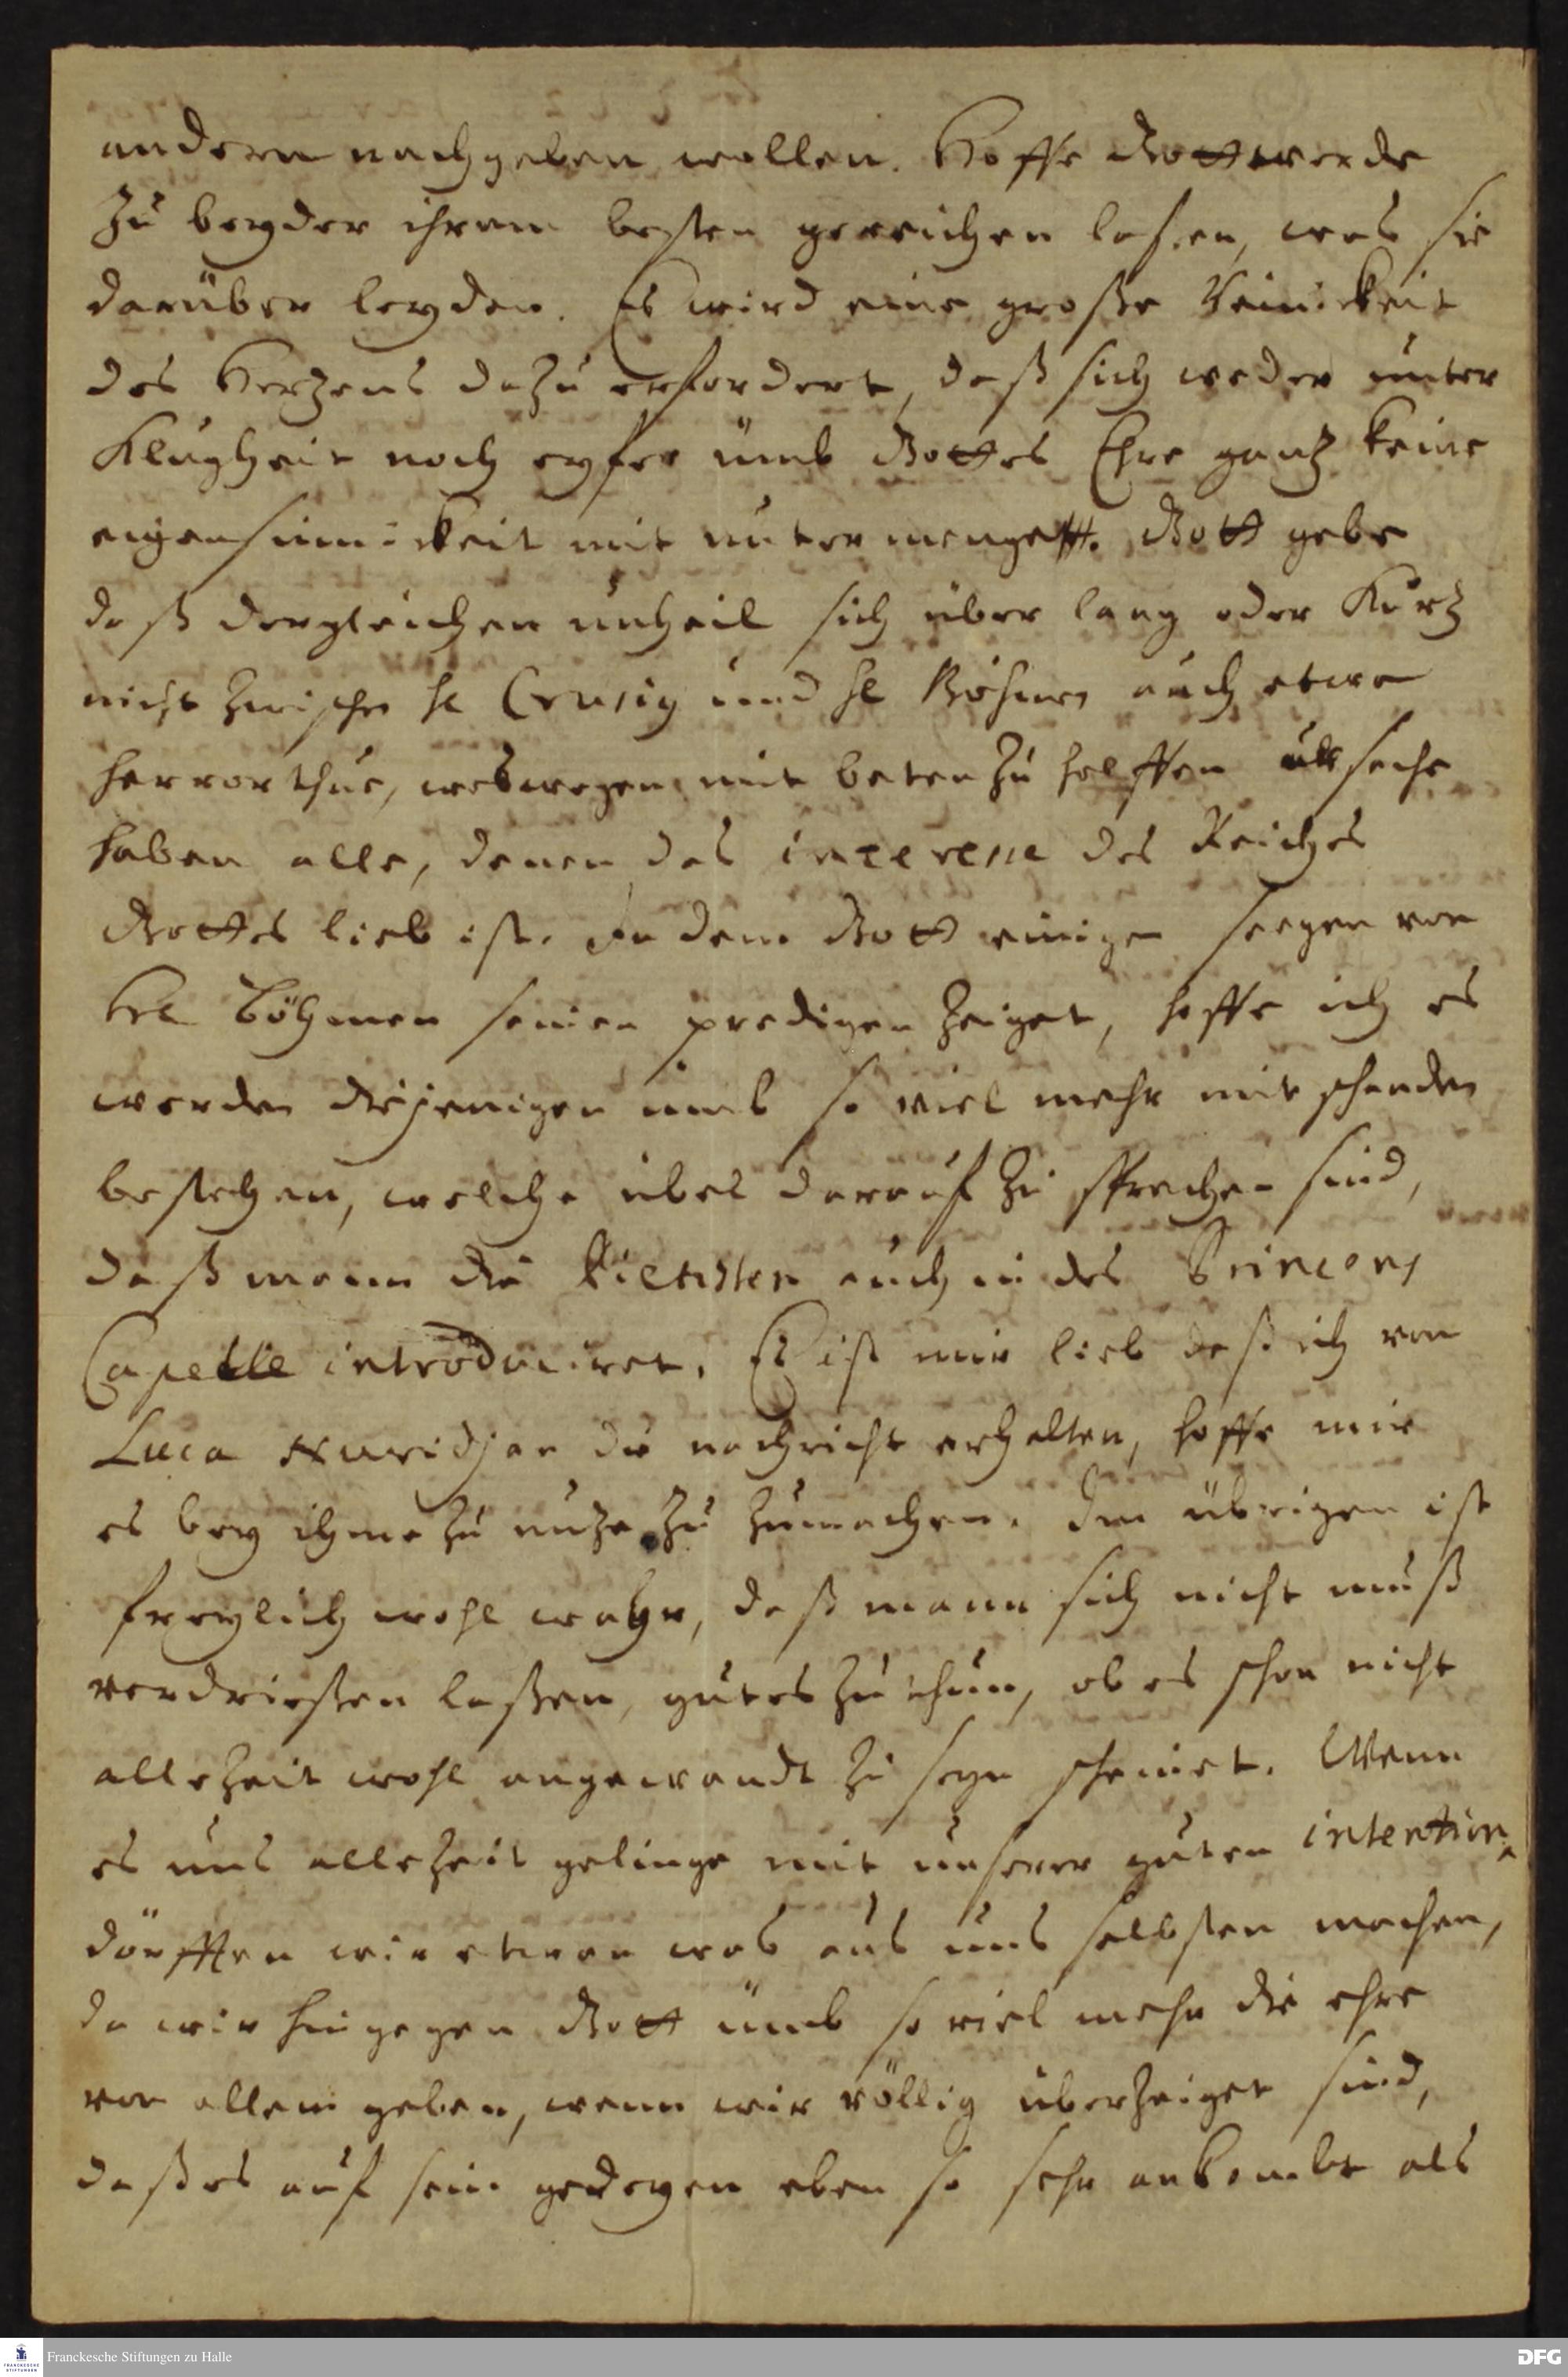 andern nachgeben wollen. Hoffe Gott werde
Zu beyder ihrem besten gereichen laßen, was sie
darüber leyden. Es wird eine große Reinickeit
des Hertzens dazu erfordert, daß sich weder unter
Klugheit noch eyfer ümb Gottes Ehre gantz keine
eigensinnickeit mit untermenget. Gott gebe
daß dergleichen unheil sich über lang oder Kurtz
nicht zwischen H Crusig und H Böhmen auch etwa
hervorthue, weswegen mit beten zu helffen uhrsache
haben alle, denen das interesse des Reiches
Gottes lieb ist. In dem Gott einigen seegen von
Hr Böhmen seinen predigen zeiget, hoffe ich es
werden diejenigen ümb so viel mehr mit schanden
bestehen, welche übel darauf zu sprechen sind,
daß mann die Pietisten auch in des Princens
Capelle introduciret. Es ist mir lieb daß ich von
Luca Nuridjan die nachricht erhalten, hoffe mir
es bey ihme zu nuze zu zumachen. Im übrigen ist
freylich wohl wahr, daß mann sich nicht muß
verdrießen laßen, gutes zu thun, ob es schon nicht
allezeit wohl angewandt zu seyn scheinet. Wenn
es uns allezeit gelinge mit unserer guten intention,
dörfften wir etwan was aus uns selbsten machen,
da wir hingegen Gott ümb so viel mehr die ehre
von allem geben, wenn wir völlig überzeiget sind,
daß es auf sein gedeyen eben so sehr ankombt als
Franckesche Stiftungen zu Halle
FRANCKESCHE STIFTUNGEN
DFG